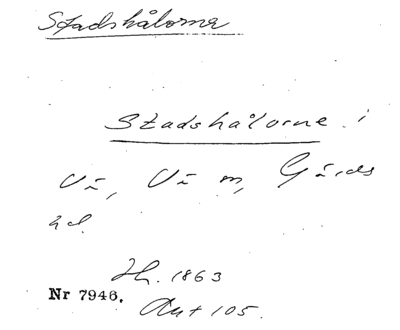 Stadshålorna
Stadshålorne i
Vä, Vä m, Gärds
hd.
Jh. 1863
Nr 7946.
Aut 105.